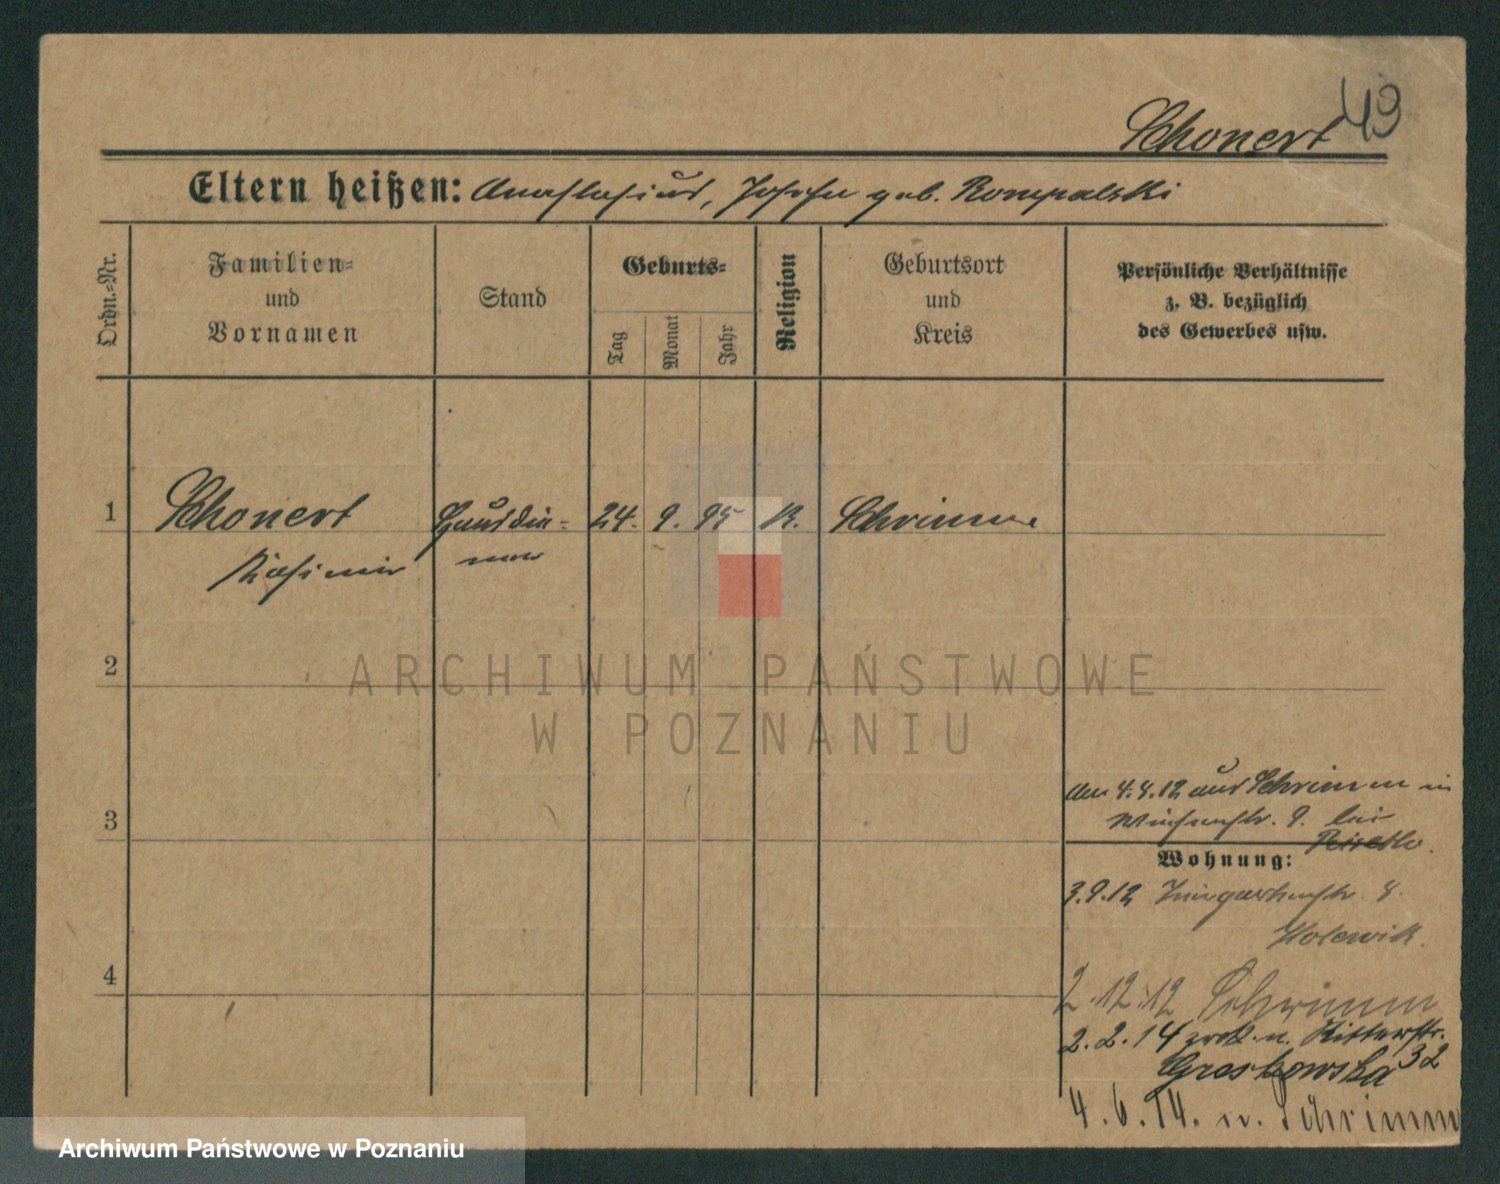 49
Schonert
Eltern heißen: Anastasius, Josefa geb. Rompalski
Ordn.-Nr.
Familien-
und
Vornamen
Stand
Geburts-
Tag
Monat
Jahr
Religion
Geburtsort
und
Kreis
Persönliche Verhältnisse
z. B. bezüglich
des Gewerbes usw.
1 Schonert Hausdie- 24. 9. 95 K. Schrimm
Kasimir ner
2
ARCHIWUM PAŃSTWOWE
W POZNANIU
3
am 4.4.12 aus Schrimm in
9. bei
Wohnung:
3.9.12 8.
4
2.12.12 Schrimm
2.2.14 zrck. n. Ritterstr.
Groskowska 32
4.6.14. n. Schrimm
Archiwum Państwowe w Poznaniu